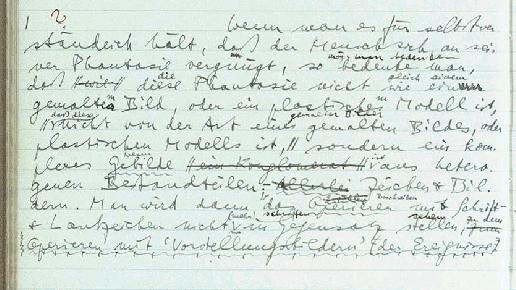 1 ? Wenn man es für selbstver
ständlich hält, daß der Mensch sich an sei
ner Phantasie vergnügt, so bedenke man,
daß diese die Phantasie nicht wie ein gleich einem
gemaltes Bild, oder ein plastisches Modell ist,
daß diese nicht von der Art eines gemalten Bildes, oder
plastischen Modells ist, sondern ein kom
plexes Gebilde ein Konglomerat aus hetero
genen Bestandteilen: allerlei Zeichen & Bil
dern. Man wird dann das Operieren mit Schrift-
& Lautzeichen nicht mehr in Gegensatz stellen, zu dem
Operieren mit 'Vorstellungsbildern' der Ereignisse